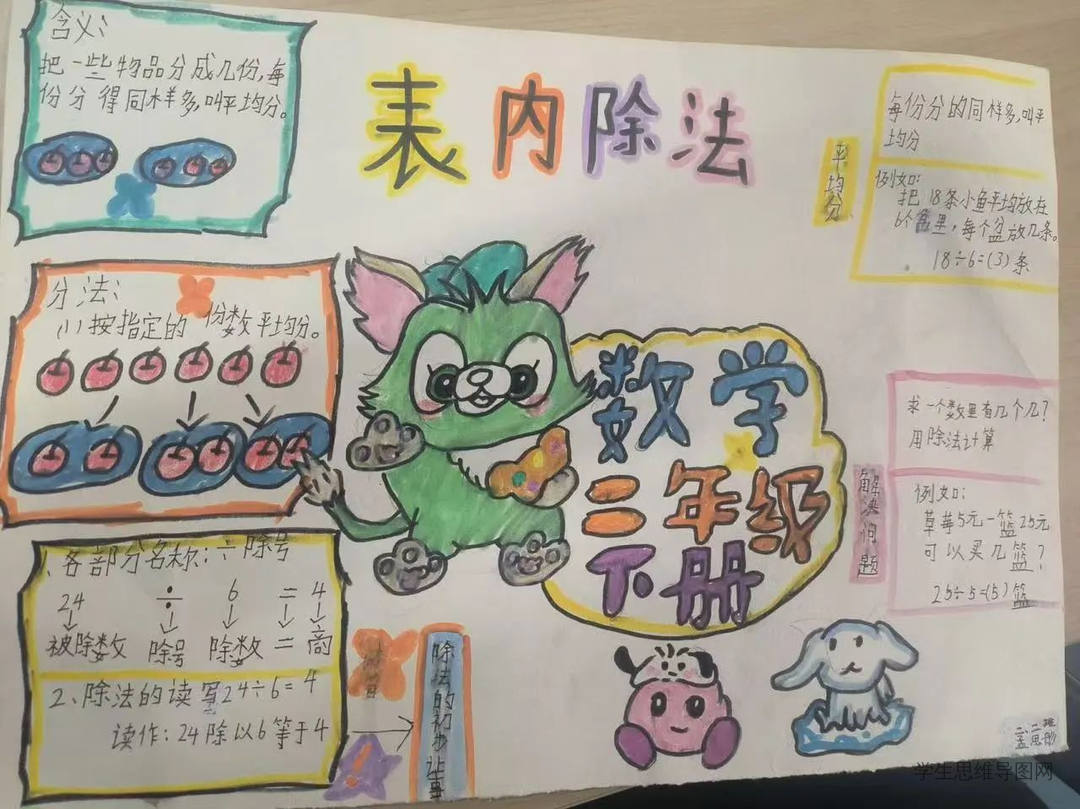 表内除法
含义:
把一些物品分成几份,每
份分得同样多,叫平均分。
分法:
(1)按指定的份数平均分。
1、各部分名称:÷除号
24 ÷ 6 = 4
被除数 除号 除数 = 商
2、除法的读写24÷6=4
读作:24除以6等于4
除法的初步
数学
二年级
下册
平均分
每份分的同样多,叫平
均分
例如:
把18条小鱼平均放在
6个盆里,每个盆放几条。
18÷6=(3)条
解决问题
求一个数里有几个几?
用除法计算
例如:
草莓5元一篮25元
可以买几篮?
25÷5=(5)篮
二、二班
孟思彤
学生思维导图网